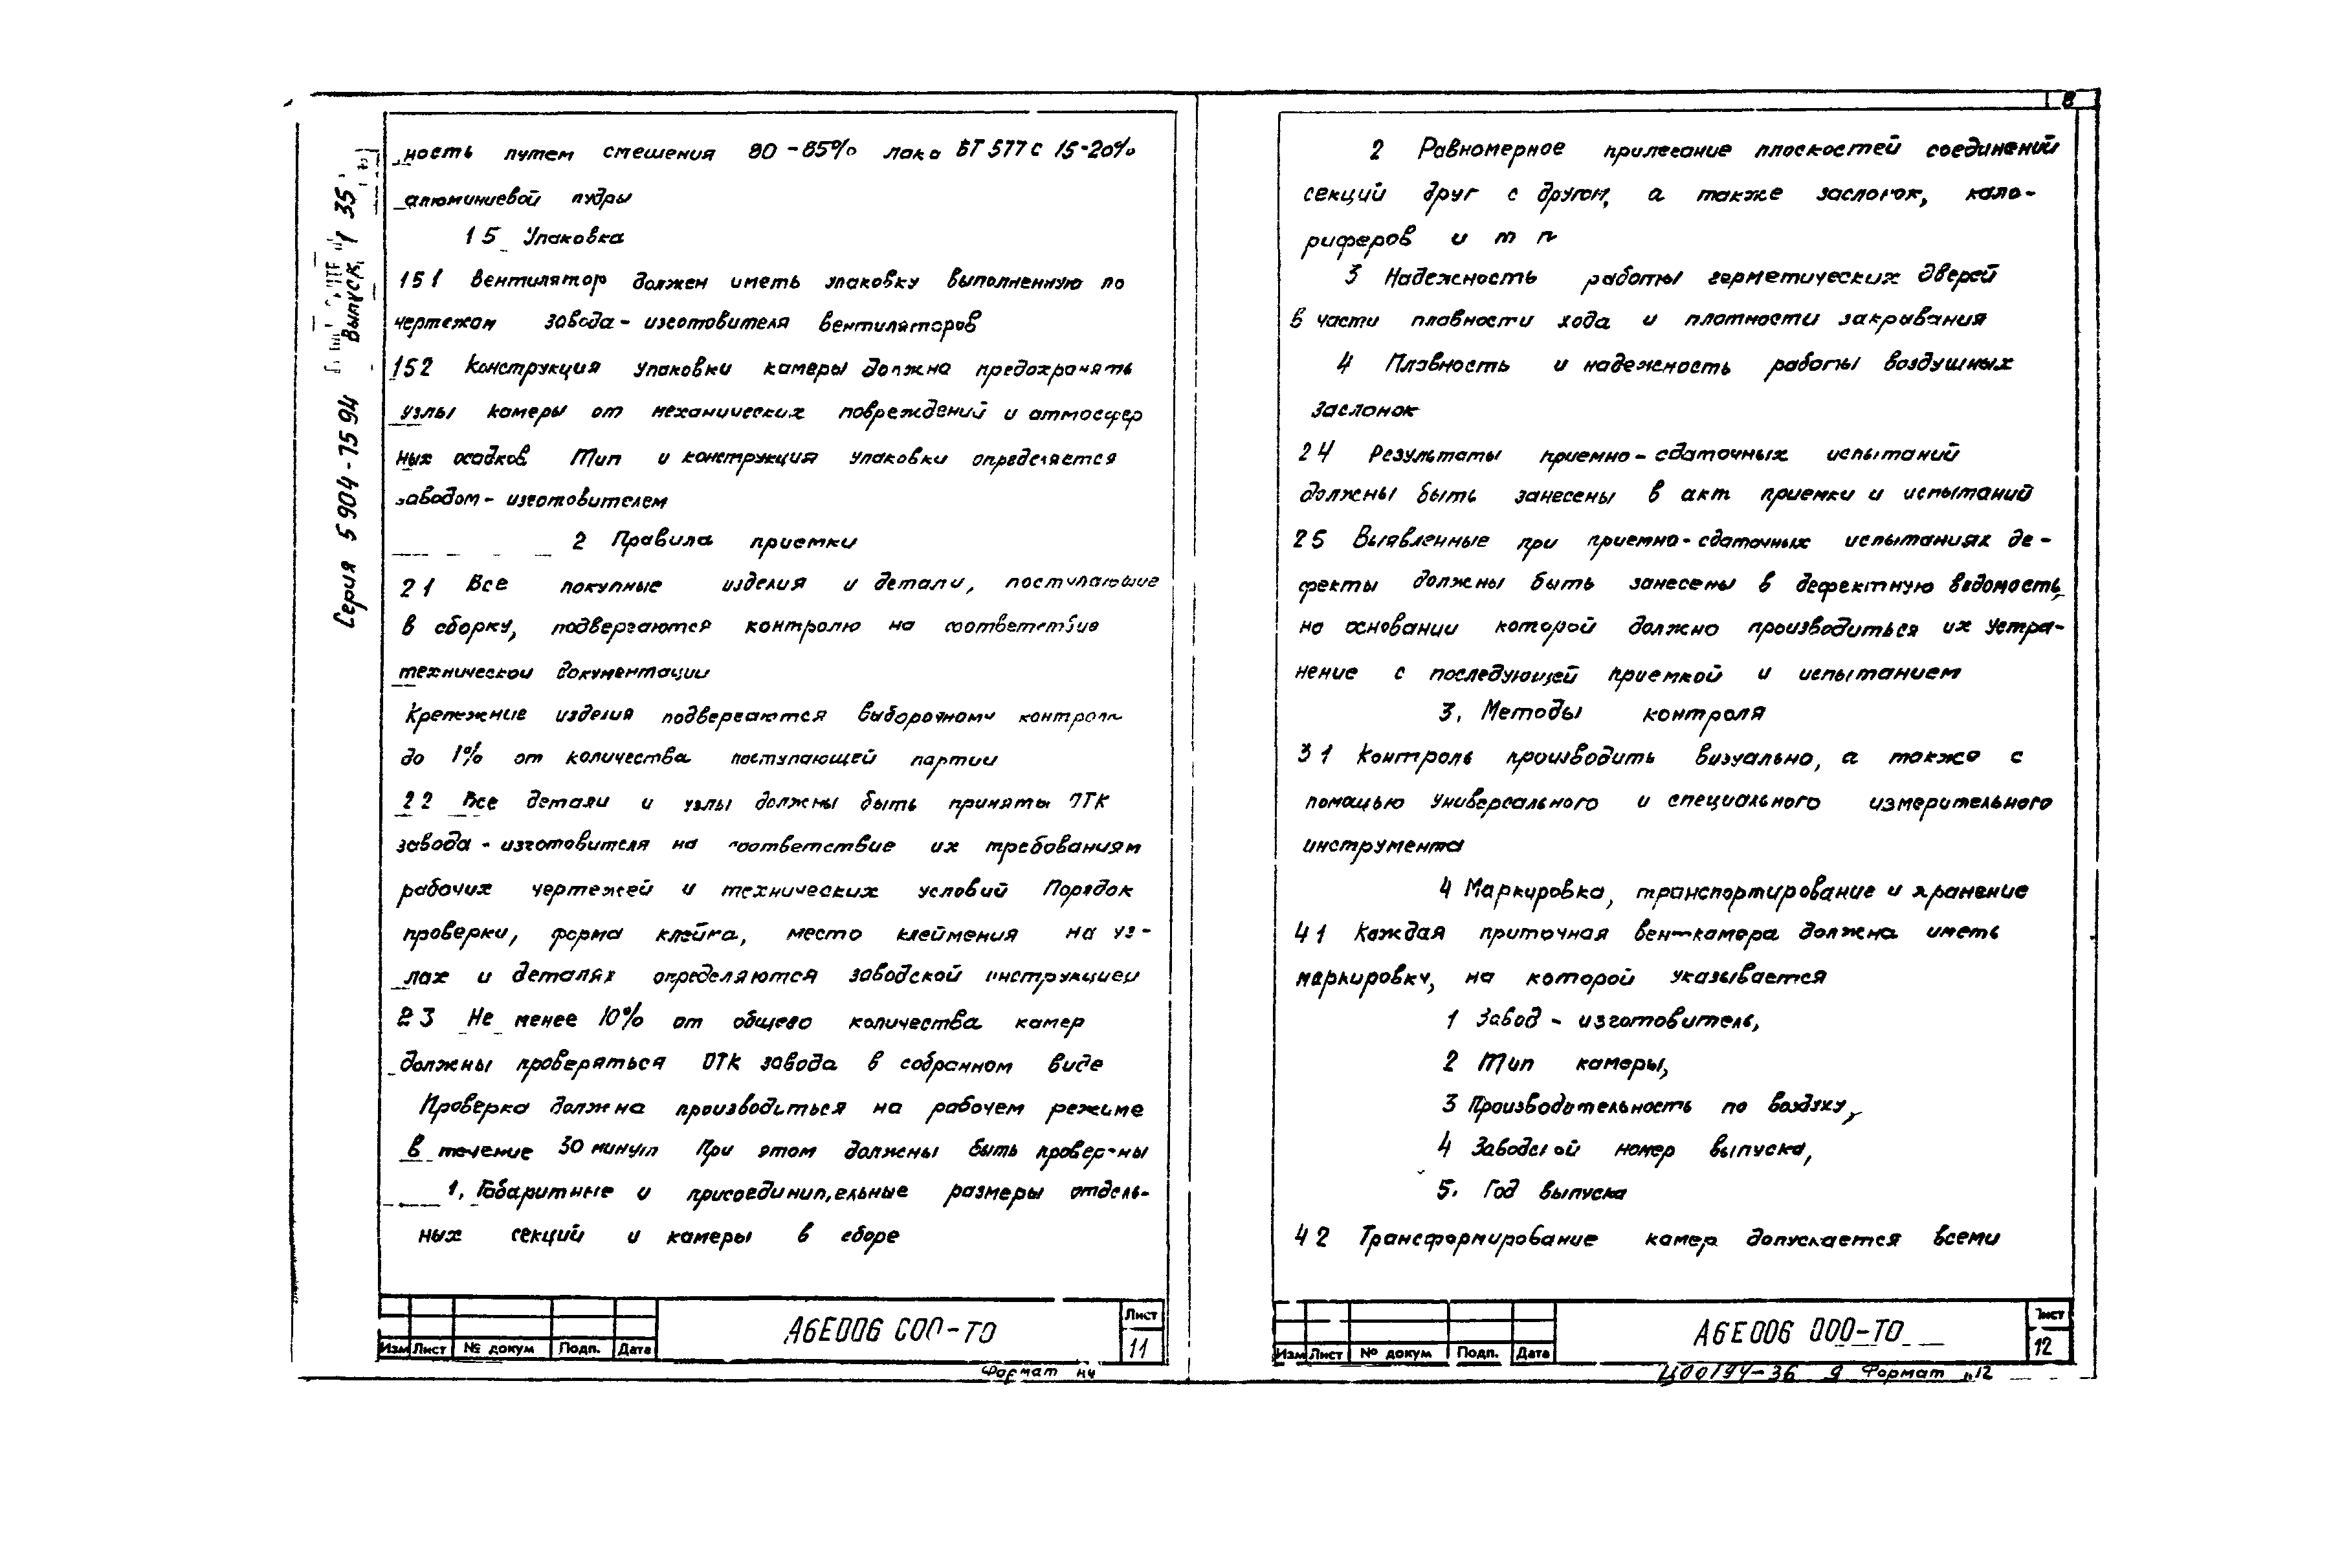 Серия 5 904-75 94 Выпуск 1 35
ность путем смешения 80-85% лака БТ 577 с 15-20%
алюминиевой пудры
1 5 Упаковка
1 5 1 Вентилятор должен иметь упаковку выполненную по
чертежам завода-изготовителя вентиляторов
1 5 2 Конструкция упаковки камеры должна предохранять
узлы камеры от механических повреждений и атмосфер
ных осадков Тип и конструкция упаковки определяется
заводом-изготовителем
2 Правила приемки
2 1 Все покупные изделия и детали, поступающие
в сборку, подвергаются контролю на соответствие
технической документации
Крепежные изделия подвергаются выборочному контролю
до 1% от количества поступающей партии
2 2 Все детали и узлы должны быть приняты ОТК
завода-изготовителя на соответствие их требованиям
рабочих чертежей и технических условий Порядок
проверки, форма клейма, место клеймения на уз-
лах и деталях определяются заводской инструкцией
2 3 Не менее 10% от общего количества камер
должны проверяться ОТК завода в собранном виде
Проверка должна производиться на рабочем режиме
в течение 30 минут При этом должны быть проверены
1. Габаритные и присоединительные размеры отдель-
ных секций и камеры в сборе
Изм Лист № докум Подп. Дата
А6Е006 000-ТО
Лист
11
Формат
8
2 Равномерное прилегание плоскостей соединений
секций друг с другом, а также заслонок, кало-
риферов и т п
3 Надежность работы герметических дверей
в части плавности хода и плотности закрывания
4 Плавность и надежность работы воздушных
заслонок
2 4 Результаты приемно-сдаточных испытаний
должны быть занесены в акт приемки и испытаний
2 5 Выявленные при приемно-сдаточных испытаниях де-
фекты должны быть занесены в дефектную ведомость,
на основании которой должно производиться их устра-
нение с последующей приемкой и испытанием
3. Методы контроля
3 1 Контроль производить визуально, а также с
помощью универсального и специального измерительного
инструмента
4 Маркировка, транспортирование и хранение
4 1 Каждая приточная венткамера должна иметь
маркировку, на которой указывается
1 Завод-изготовитель,
2 Тип камеры,
3 Производительность по воздуху,
4 Заводской номер выпуска,
5. Год выпуска
4 2 Трансформирование камер допускается всеми
Изм Лист № докум Подп. Дата
А6Е006 000-ТО
Лист
12
Ц00194-36 9 Формат 12